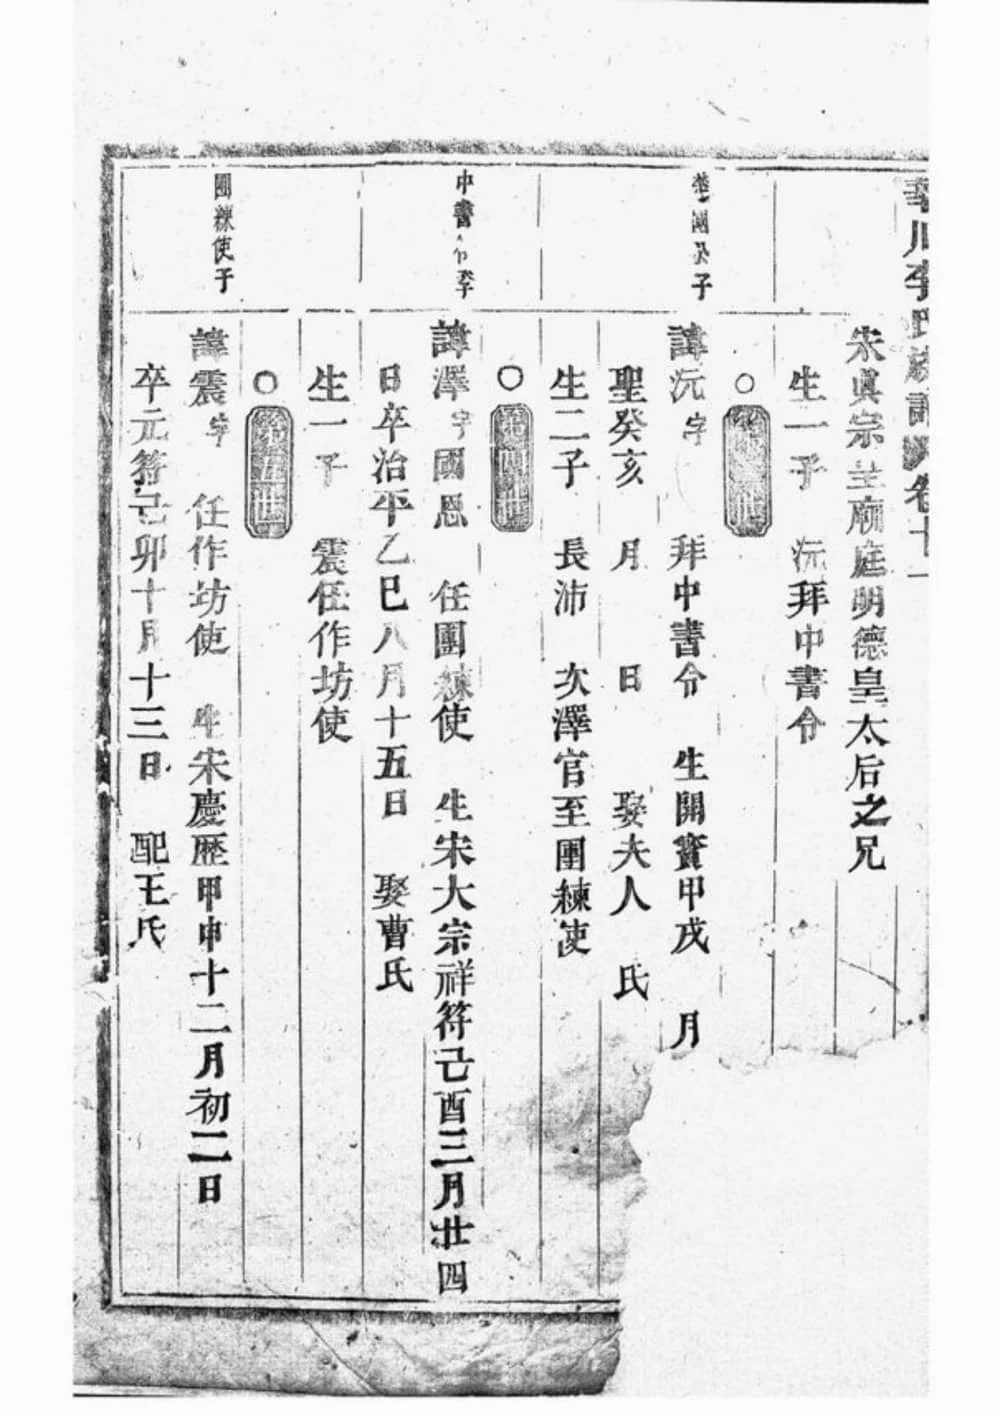 華川李氏族譜 卷十一
宋眞宗主廟庭明德皇太后之兄
生一子 沆拜中書令
○第三世
楚國公子
諱沆字 拜中書令 生開寳甲戌 月
聖癸亥 月 日 娶夫人 氏
生二子 長沛 次澤官至團練使
○第四世
中書令李
諱澤字國恩 任團練使 生宋大宗祥符己酉三月廿四
日卒治平乙巳八月十五日 娶曹氏
生一子 震任作坊使
○第五世
團練使子
諱震字 任作坊使 生宋慶歷甲申十二月初二日
卒元符己卯十月十三日 配王氏